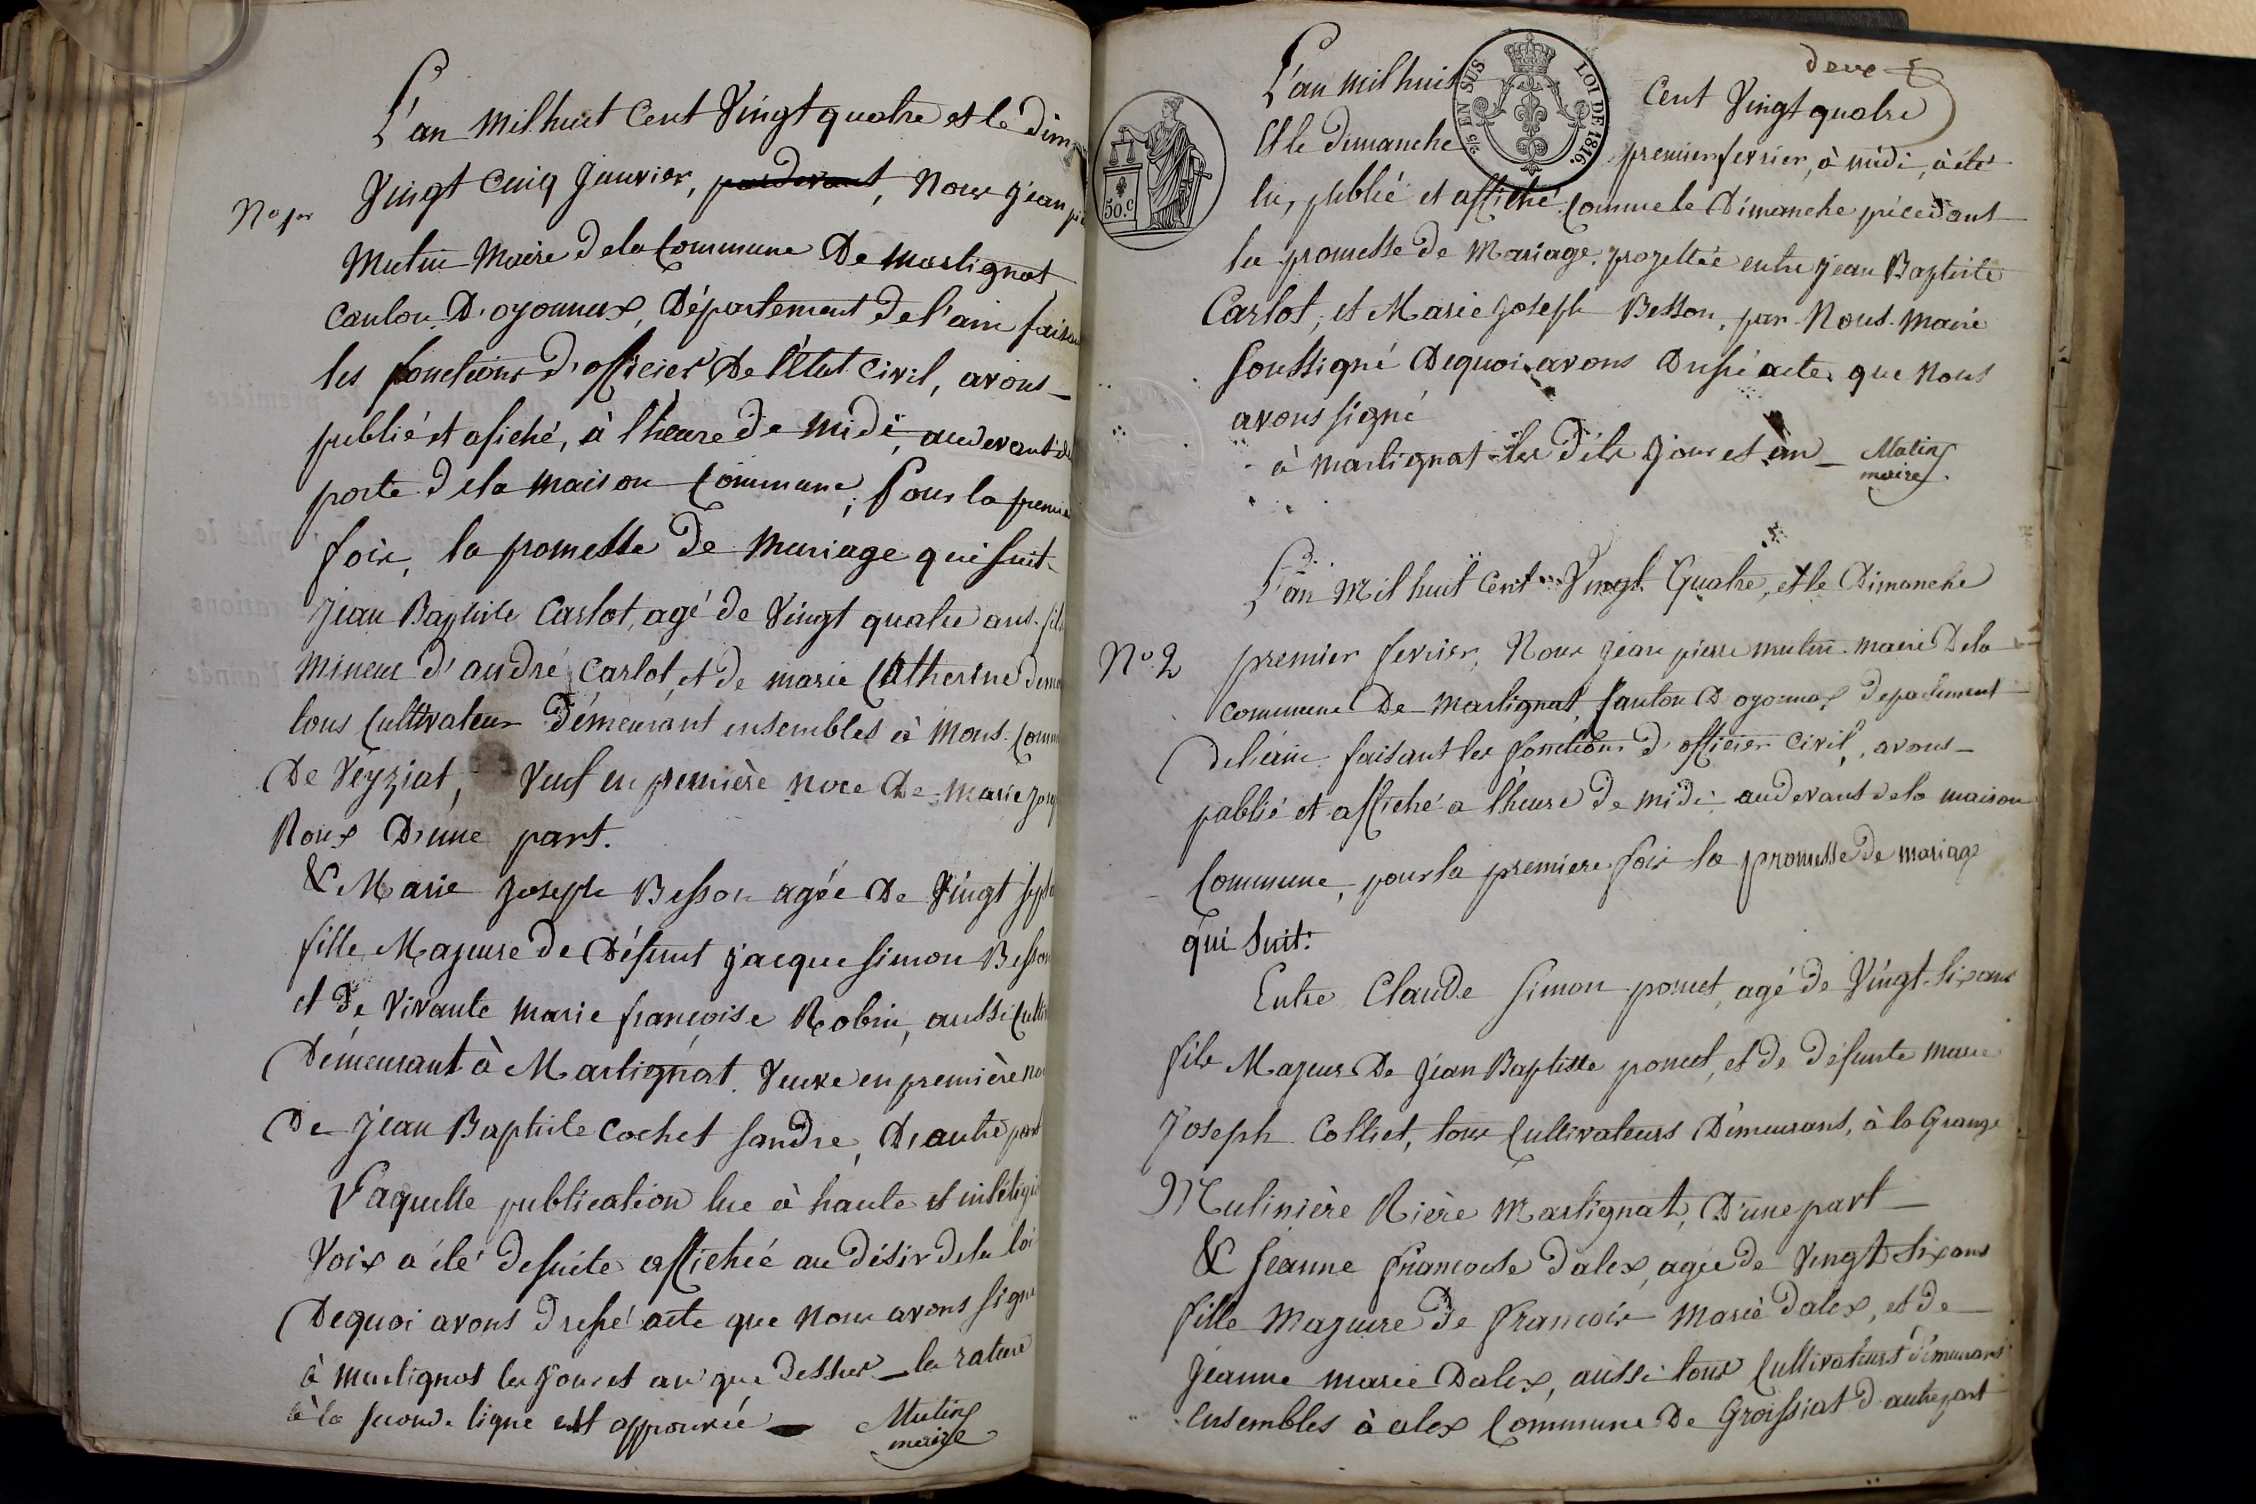 L'an mil huit Cent Vingt quatre et le dim
Nº 1er Vingt Cinq Janvier, pardevant, Nous Jean
Mutin Maire de la Commune De Martignat
Canton D'oyonnax, Département De l'ain faisan
les fonctions d'officier De l'État Civil, avons
publié et afiché, à l'heure De Midi, au devant de
porte de la Maison Commune, pour la premie
fois, la promesse De Mariage qui suit
Jean Baptiste Carlot, agé de Vingt quatre ans fils
Mineur d'andré Carlot et de marie Catherine
tous Cultivateur Démeurant ensembles à Mons Comm
De Veyziat, Veuf en première Noce De Marie
Roux D'une part.
& Marie Joseph Besson agée De Vingt sept
fille Majeure de Défunt Jacque Simon Besson
et de Vivante marie françoise Robin, aussi Cultiv
Démeurant à Martignat Veuve en première no
De Jean Baptiste Cochet Sandre, D'autre part
Laquelle publication lue à haute et intéligi
Voix a été desuite affichée au désir de la loi
Dequoi avons dressé acte que nous avons signé
à Martignat les Jour et an que dessus la rature
à la seconde ligne est approuvée Mutin
maire
deux
L'an mil huit Cent Vingt quatre
5/10 EN SUS LOI DE 1816.
Et le dimanche premier fevrier, à midi, à été
50.c
lu, publié et affiché Comme le Dimanche précédant
la promesse de Mariage projettée entre Jean Baptiste
Carlot, et Marie Joseph Besson, par Nous Maire
soussigné Dequoi avons Dressé acte que Nous
avons signé
à Martignat les dits Jour et an Mutin
maire
L'an Mil huit Cent Vingt Quatre, et le Dimanche
Nº 2 premier fevrier, Nous Jean pierre mutin maire De la
Commune De Martignat, Canton D'oyonnax département
de l'ain faisant les fonctions d'officier Civil, avons
publié et affiché a l'heure De midi au devant de la maison
Commune, pour la premiere fois la promesse De mariage
qui suit:
Entre Claude Simon poncet, agé de Vingt Six ans
fils Majeur De Jean Baptiste poncet, et de défunte marie
Joseph Colliet, tous Cultivateurs Démeurans, à la Grange
Mulinière Rière Martignat, D'une part
& Jeanne françoise Dalex, agée de Vingt Six ans
fille Majeure De François Marie Dalex, et De
Jeanne marie Dalex, aussi tous Cultivateurs démeurans
ensembles à alex Commune De Groissiat d'autre part